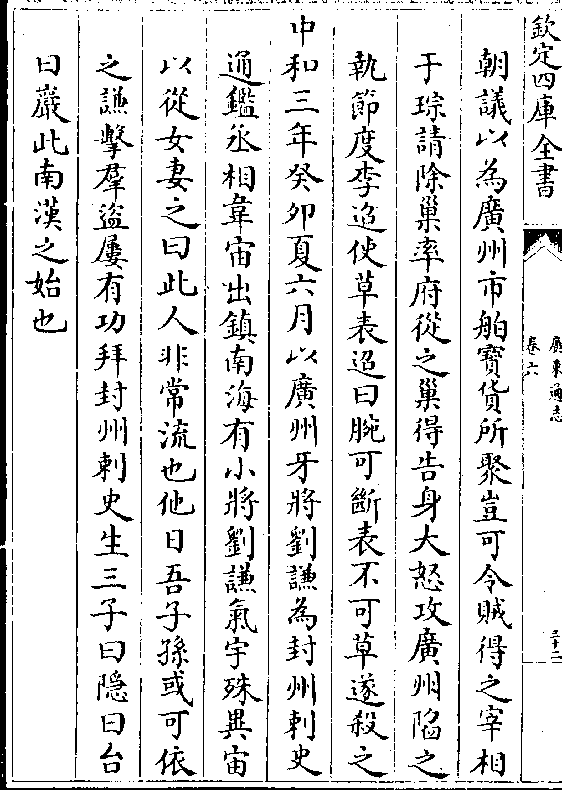 欽定四庫全書
廣東通志
卷六
三十二
朝議以為廣州市舶寳貨所聚豈可令賊得之宰相
于琮請除巢率府從之巢得告身大怒攻廣州陷之
執節度李迢使草表迢曰腕可斷表不可草遂殺之
中和三年癸卯夏六月以廣州牙將劉謙為封州刺史
通鑑丞相韋宙出鎮南海有小將劉謙氣宇殊異宙
以從女妻之曰此人非常流也他日吾子孫或可依
之謙擊羣盜屢有功拜封州刺史生三子曰隠曰台
曰巖此南漢之始也